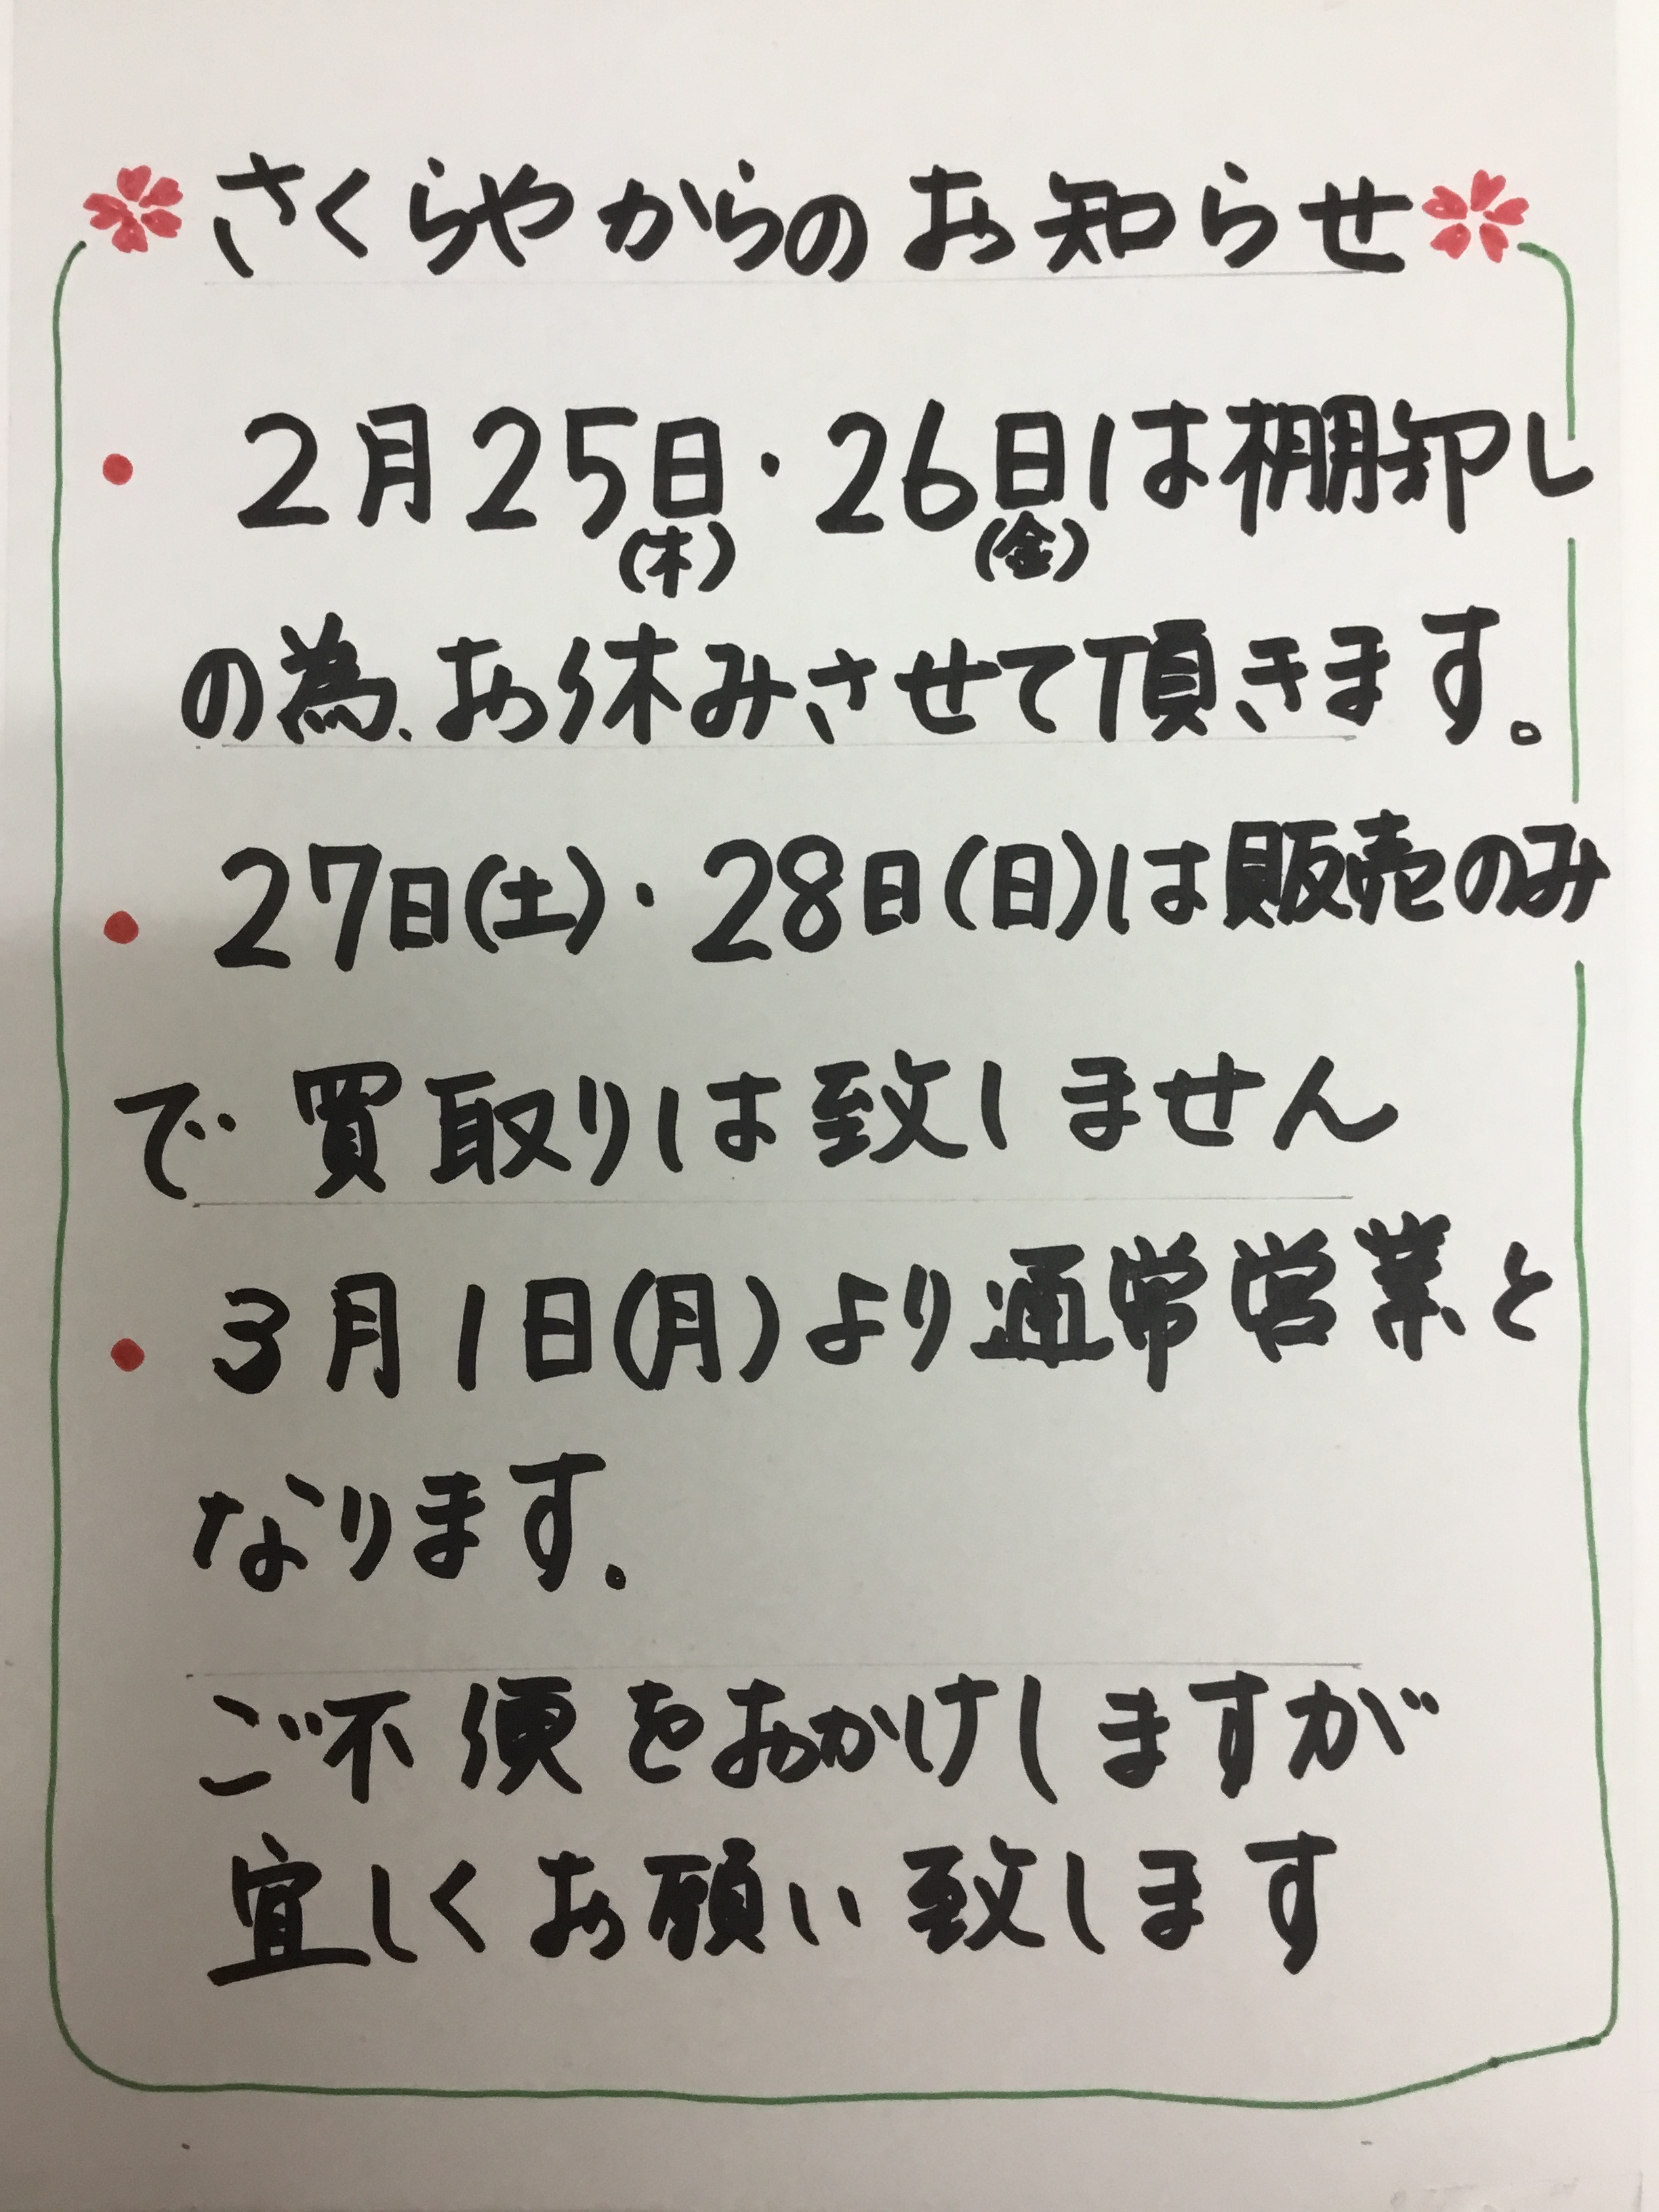 さくらやからのお知らせ
・2月25日(木)・26日(金)は棚卸し
の為、お休みさせて頂きます。
・27日(土)・28日(日)は販売のみ
で買取りは致しません
・3月1日(月)より通常営業と
なります.
ご不便をおかけしますが
宜しくお願い致します